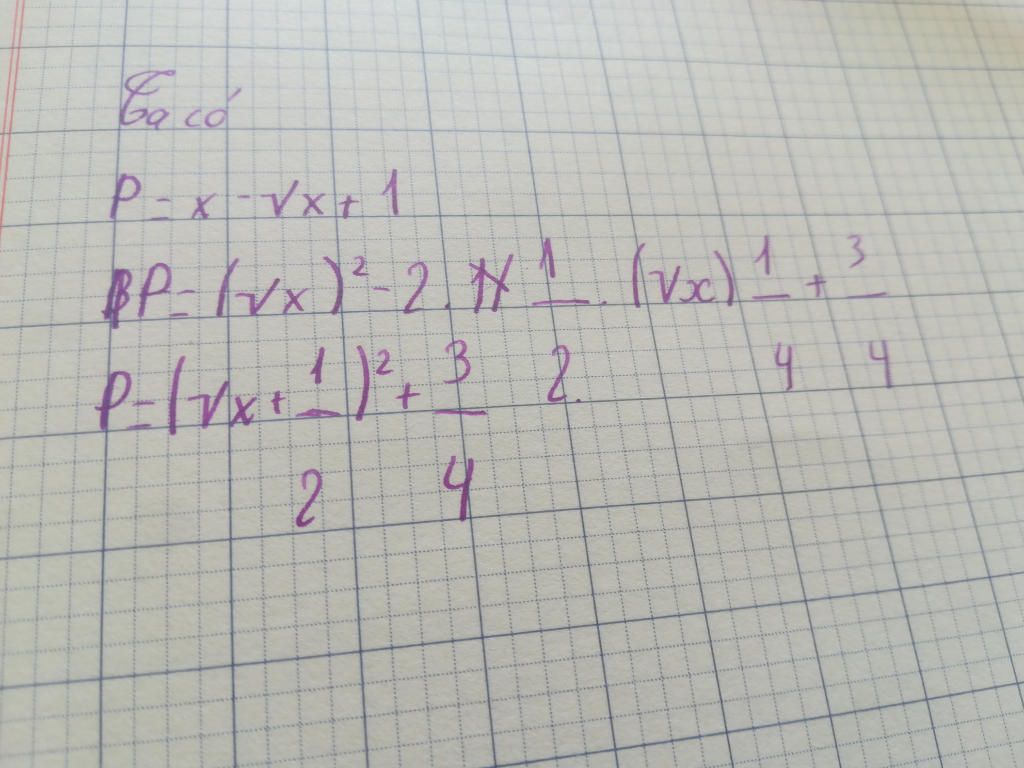 Ta có
P = x - √x + 1
P = (√x)² - 2. 1/2. (√x) 1/4 + 3/4
P = (√x + 1/2)² + 3/4